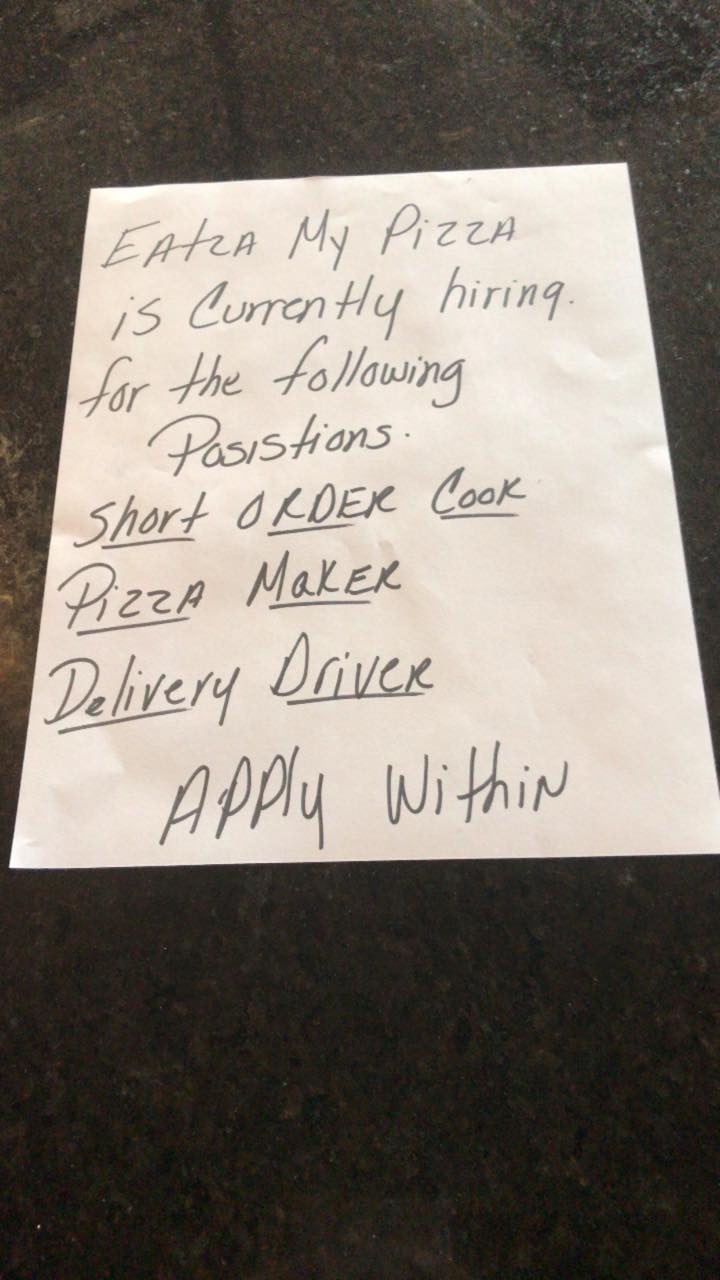 EAtzA My PizzA
is Currently hiring.
for the following
Posistions.
Short ORDER Cook
PizzA MaKER
Delivery DrivER
APPly WithiN